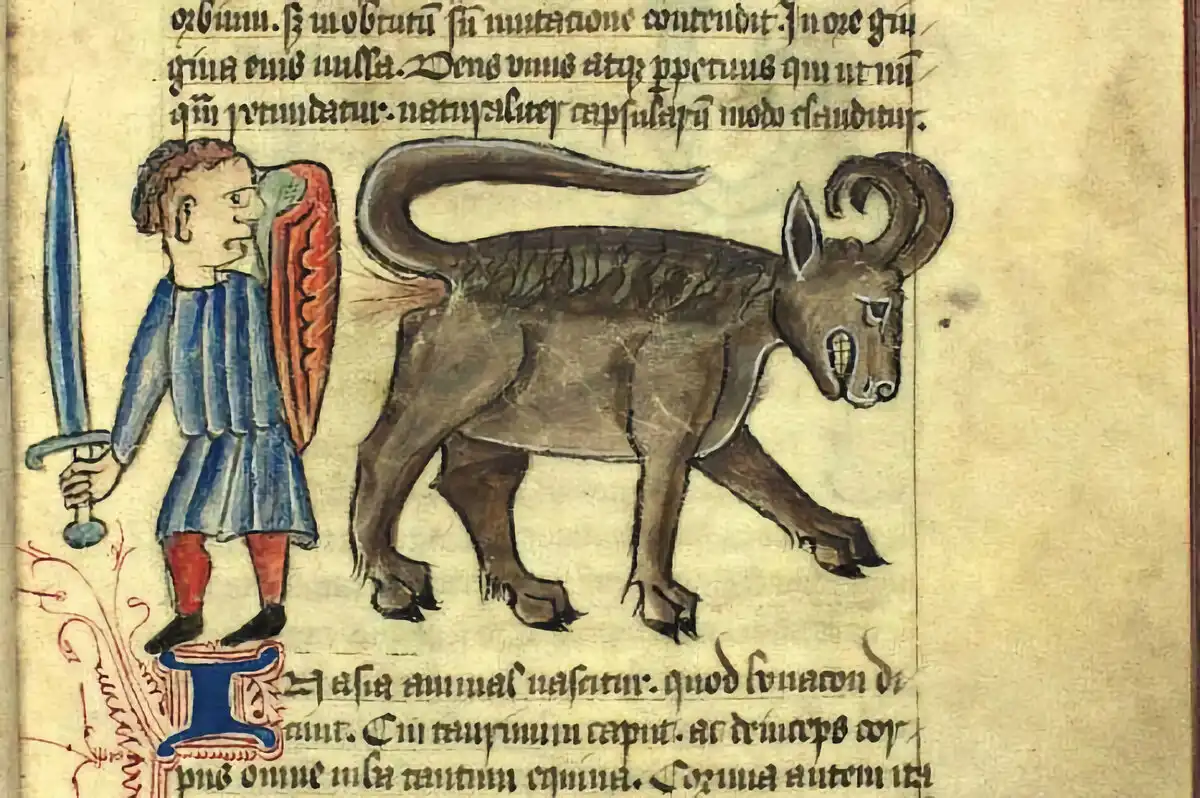 orbium. sʒ in obtutū sn̄ mutacione contendit. In ore gin
giua eius nulla. Dens vnus atqꝫ ꝑpetuus qui ut nū
qm̄ retundatur. naturaliter capsularū modo clauditur.
IN asia animal nascitur. quod bonacon di
cunt. Cui taurinum caput. ac deinceps cor
pus omne iuba tantum equina. Cornua autem ita